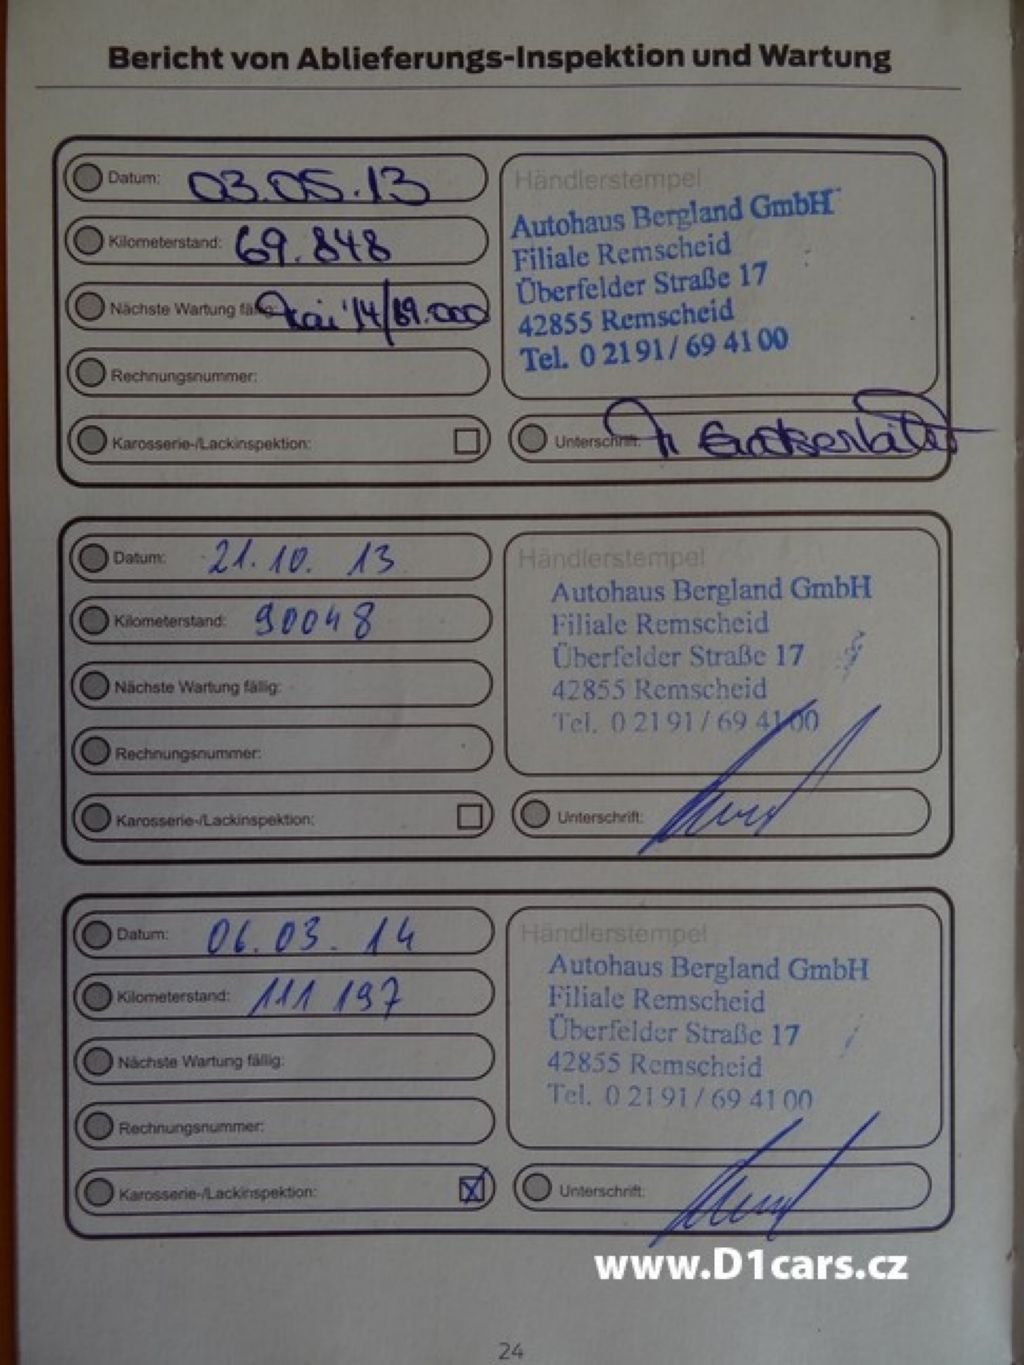 Bericht von Ablieferungs-Inspektion und Wartung
Datum: 03.05.13
Kilometerstand: 69.848
Nächste Wartung fällig: Mai '14/89.000
Rechnungsnummer:
Karosserie-/Lackinspektion:
Händlerstempel
Autohaus Bergland GmbH
Filiale Remscheid
Überfelder Straße 17
42855 Remscheid
Tel. 0 21 91 / 69 41 00
Unterschrift:
Datum: 21.10. 13
Kilometerstand: 90048
Nächste Wartung fällig:
Rechnungsnummer:
Karosserie-/Lackinspektion:
Händlerstempel
Autohaus Bergland GmbH
Filiale Remscheid
Überfelder Straße 17
42855 Remscheid
Tel. 0 21 91 / 69 41 00
Unterschrift:
Datum: 06.03.14
Kilometerstand: 111 197
Nächste Wartung fällig:
Rechnungsnummer:
Karosserie-/Lackinspektion: X
Händlerstempel
Autohaus Bergland GmbH
Filiale Remscheid
Überfelder Straße 17
42855 Remscheid
Tel. 0 21 91 / 69 41 00
Unterschrift:
www.D1cars.cz
24